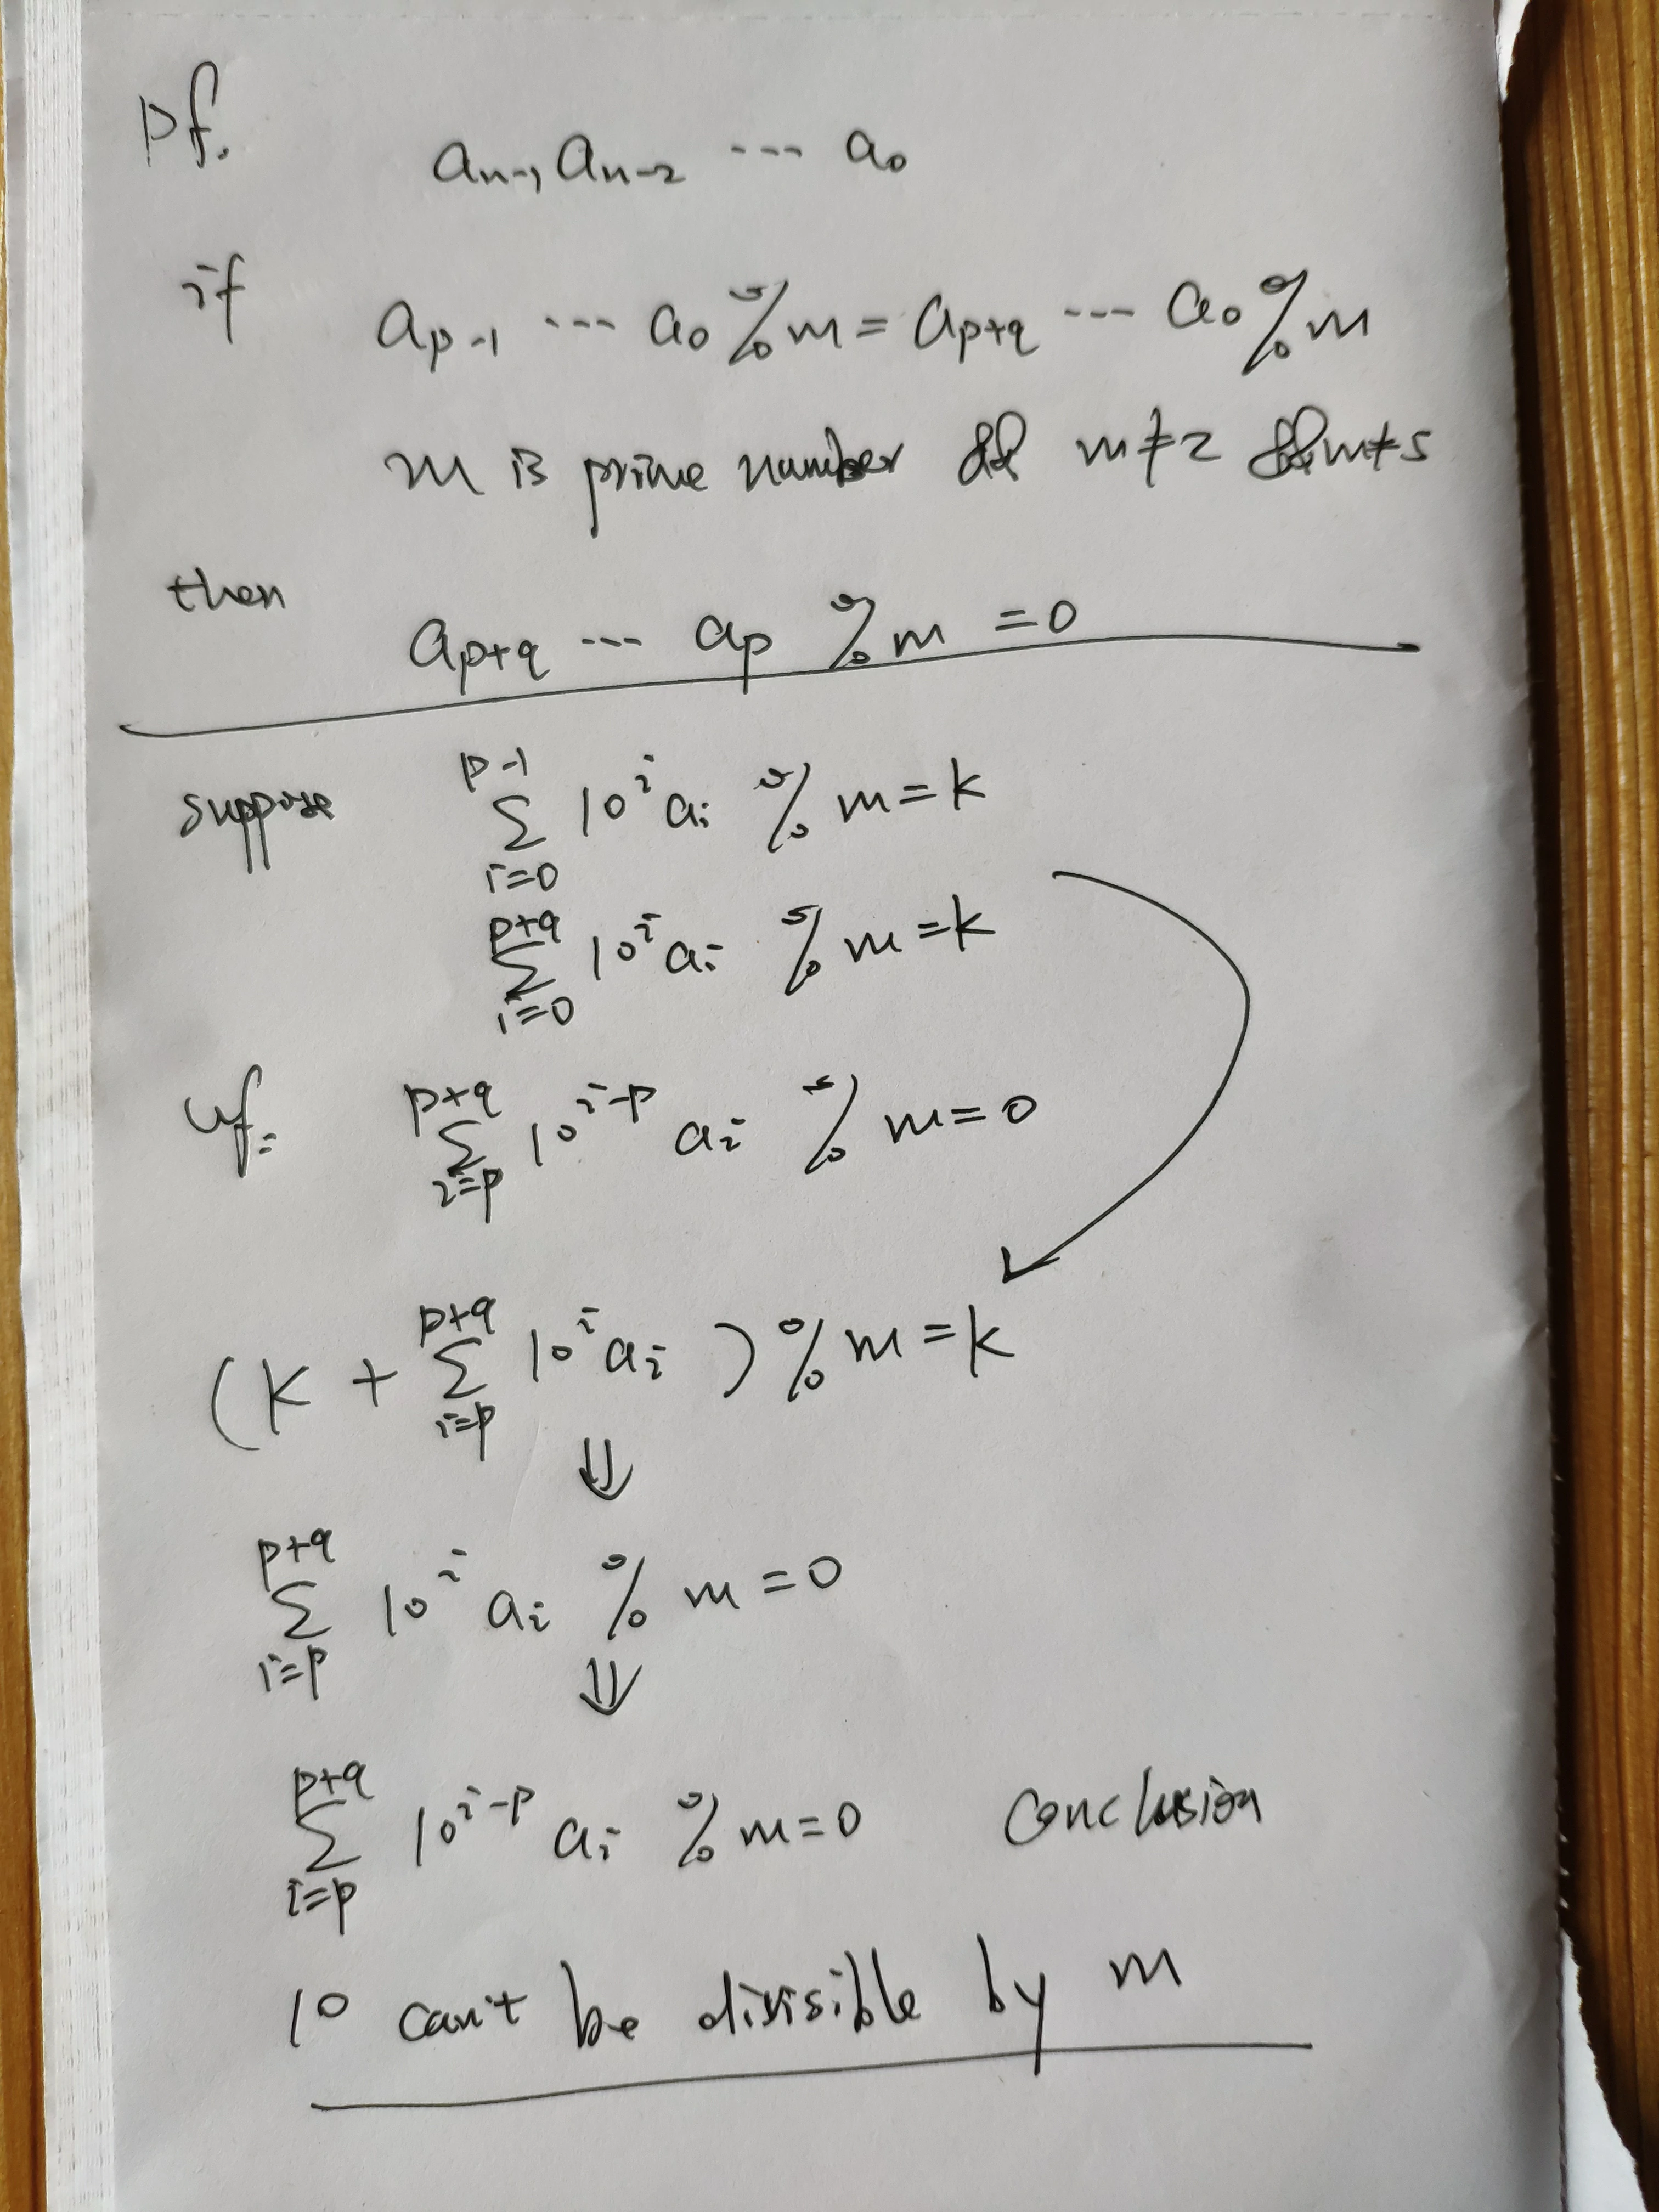 pf. aₙ₋₁ aₙ₋₂ --- a₀
if aₚ₋₁ --- a₀ % m = aₚ₊q --- a₀ % m
m is prime number && m ≠ 2 && m ≠ 5
then aₚ₊q --- aₚ % m = 0
suppose ∑_{i=0}^{p-1} 10^i a_i % m = k
∑_{i=0}^{p+q} 10^i a_i % m = k
∑_{i=p}^{p+q} 10^{i-p} a_i % m = 0
(k + ∑_{i=p}^{p+q} 10^i a_i) % m = k
⇓
∑_{i=p}^{p+q} 10^i a_i % m = 0
⇓
∑_{i=p}^{p+q} 10^{i-p} a_i % m = 0 Conclusion
10 can't be divisible by m